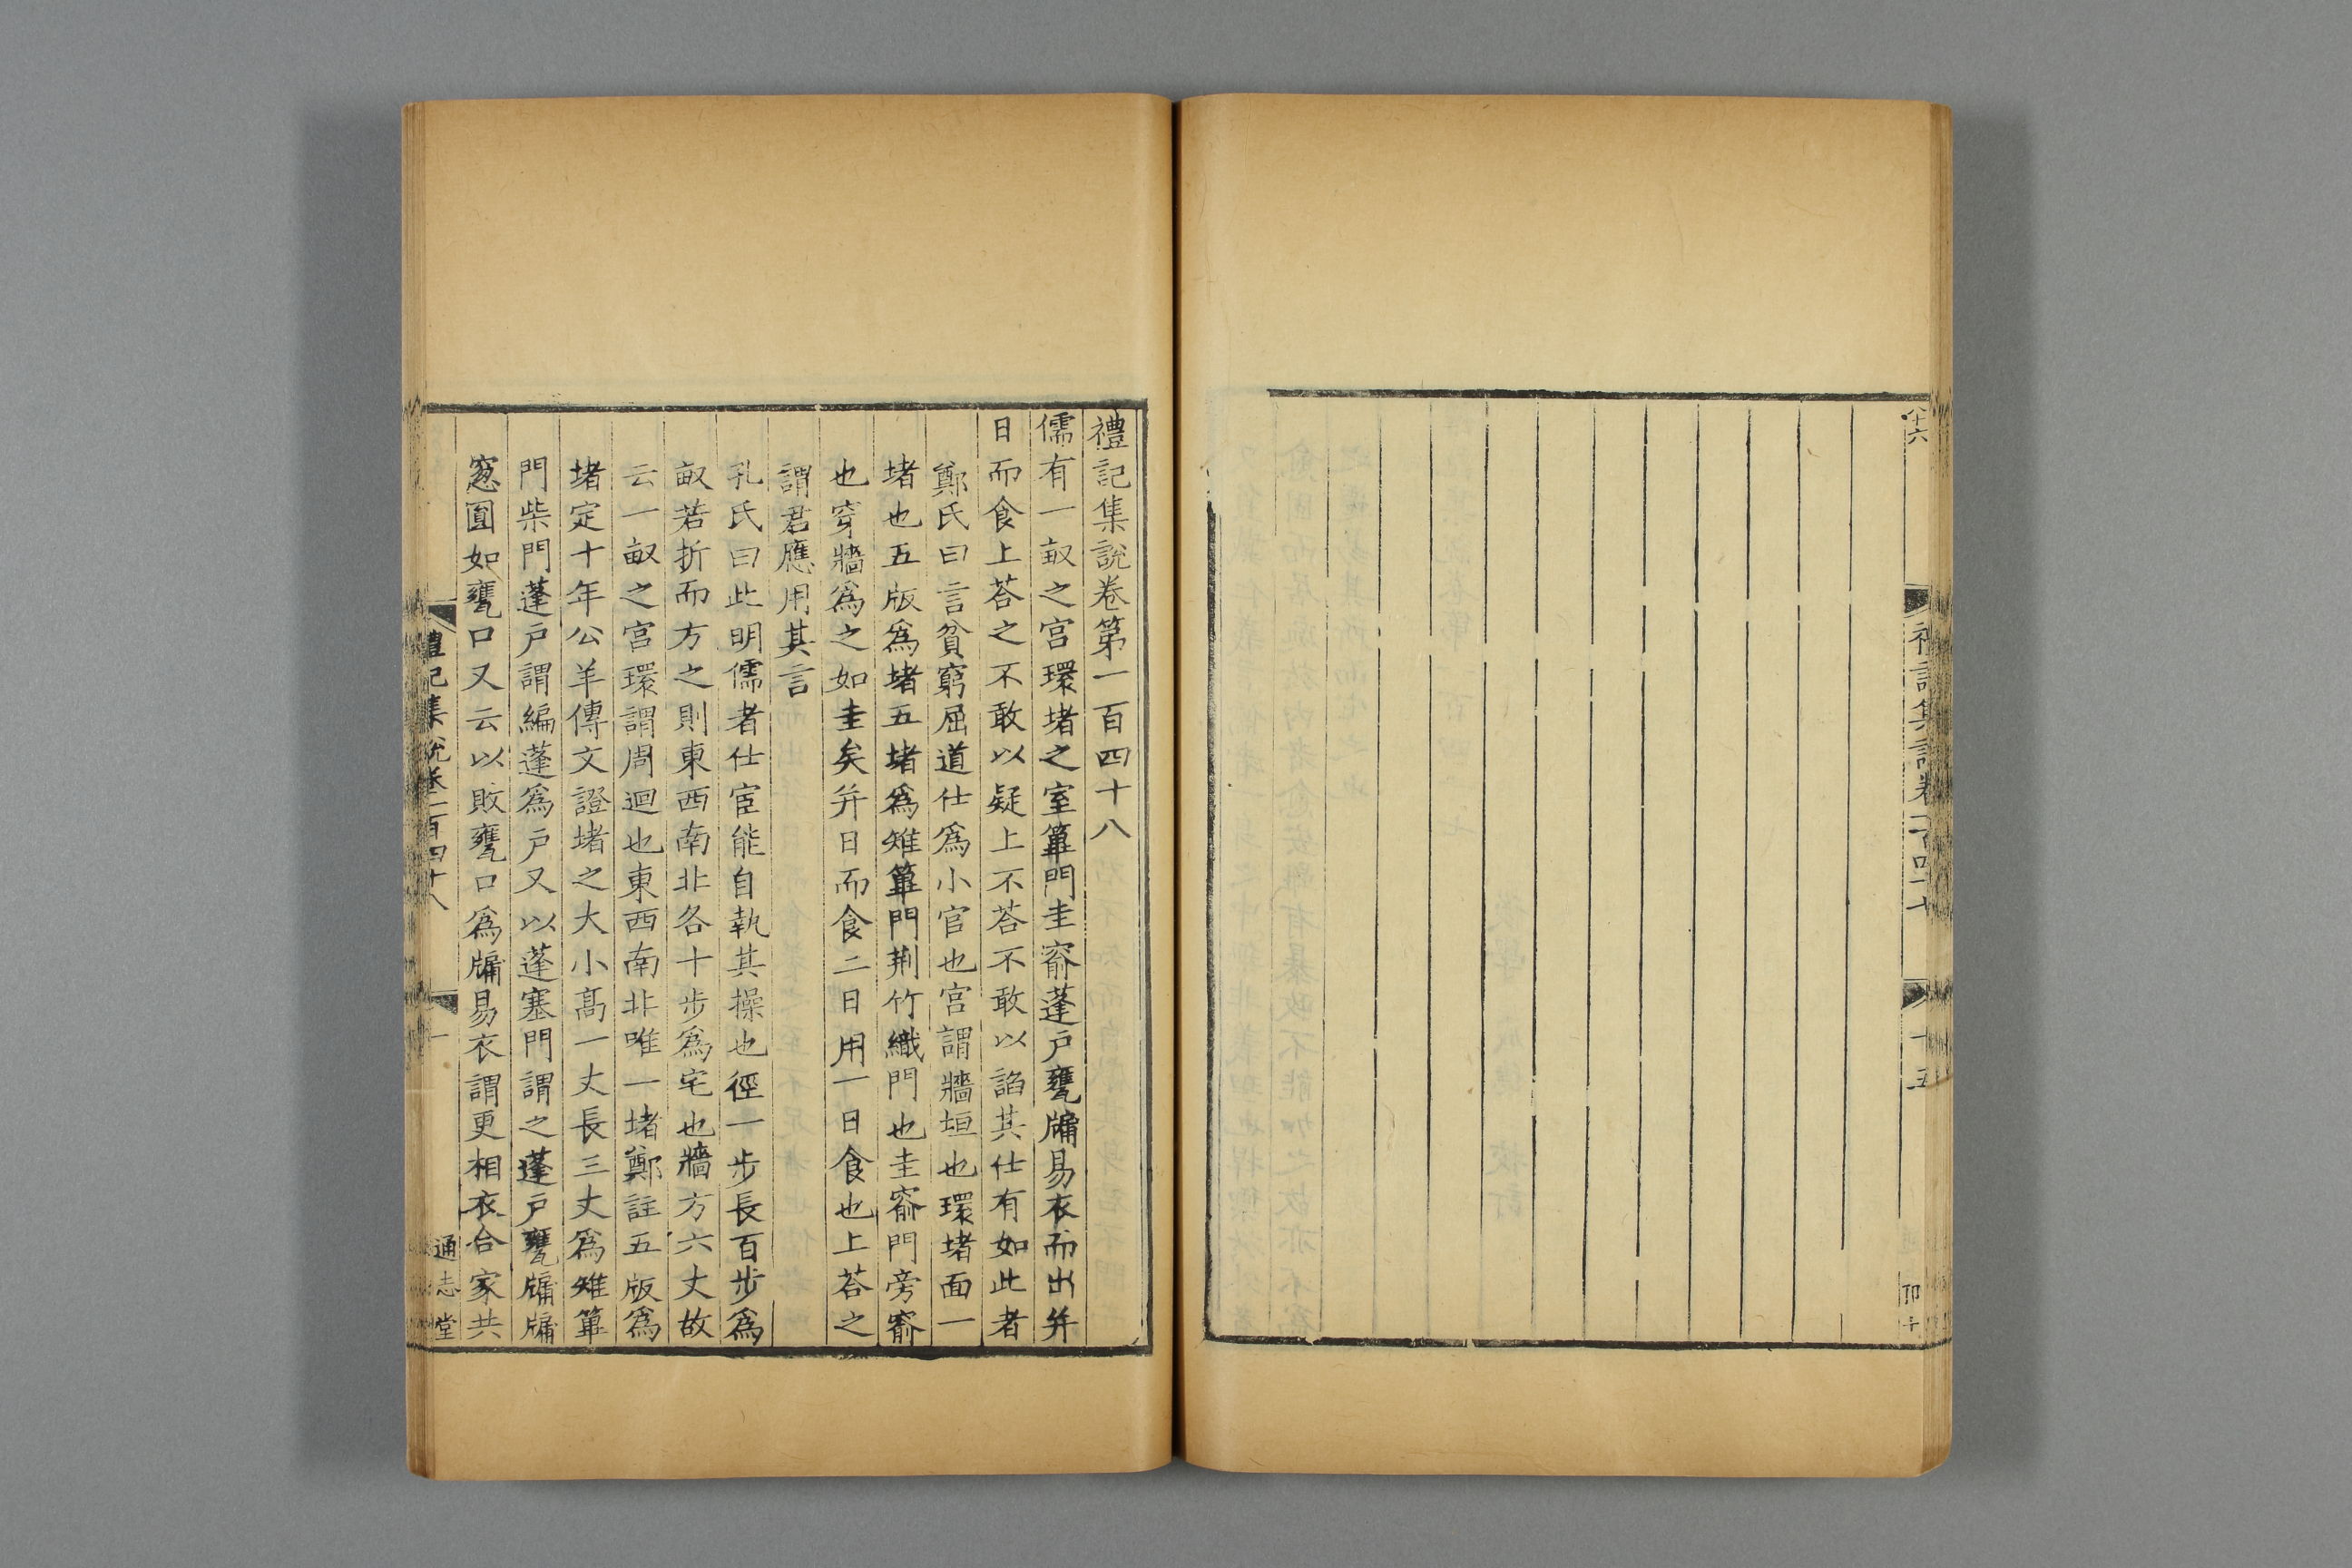 禮記集說卷第一百四十八
儒有一畝之宫環堵之室篳門圭窬蓬戸甕牖易衣而出并
日而食上荅之不敢以疑上不荅不敢以諂其仕有如此者
鄭氏曰言貧窮屈道仕爲小官也宫謂牆垣也環堵面一
堵也五版爲堵五堵爲雉篳門荆竹織門也圭窬門旁窬
也穿牆爲之如圭矣并日而食二日用一日食也上荅之
謂君應用其言
孔氏曰此明儒者仕宦能自執其操也徑一步長百步爲
畝若折而方之則東西南北各十步爲宅也牆方六丈故
云一畝之宫環謂周迴也東西南北唯一堵鄭註五版爲
堵定十年公羊傳文證堵之大小高一丈長三丈爲雉篳
門柴門蓬戸謂編蓬爲戸又以蓬塞門謂之蓬戸甕牖牖
窓圓如甕口又云以敗甕口爲牖易衣謂更相衣合家共
禮記集說卷一百四十八
一
通志堂
十五